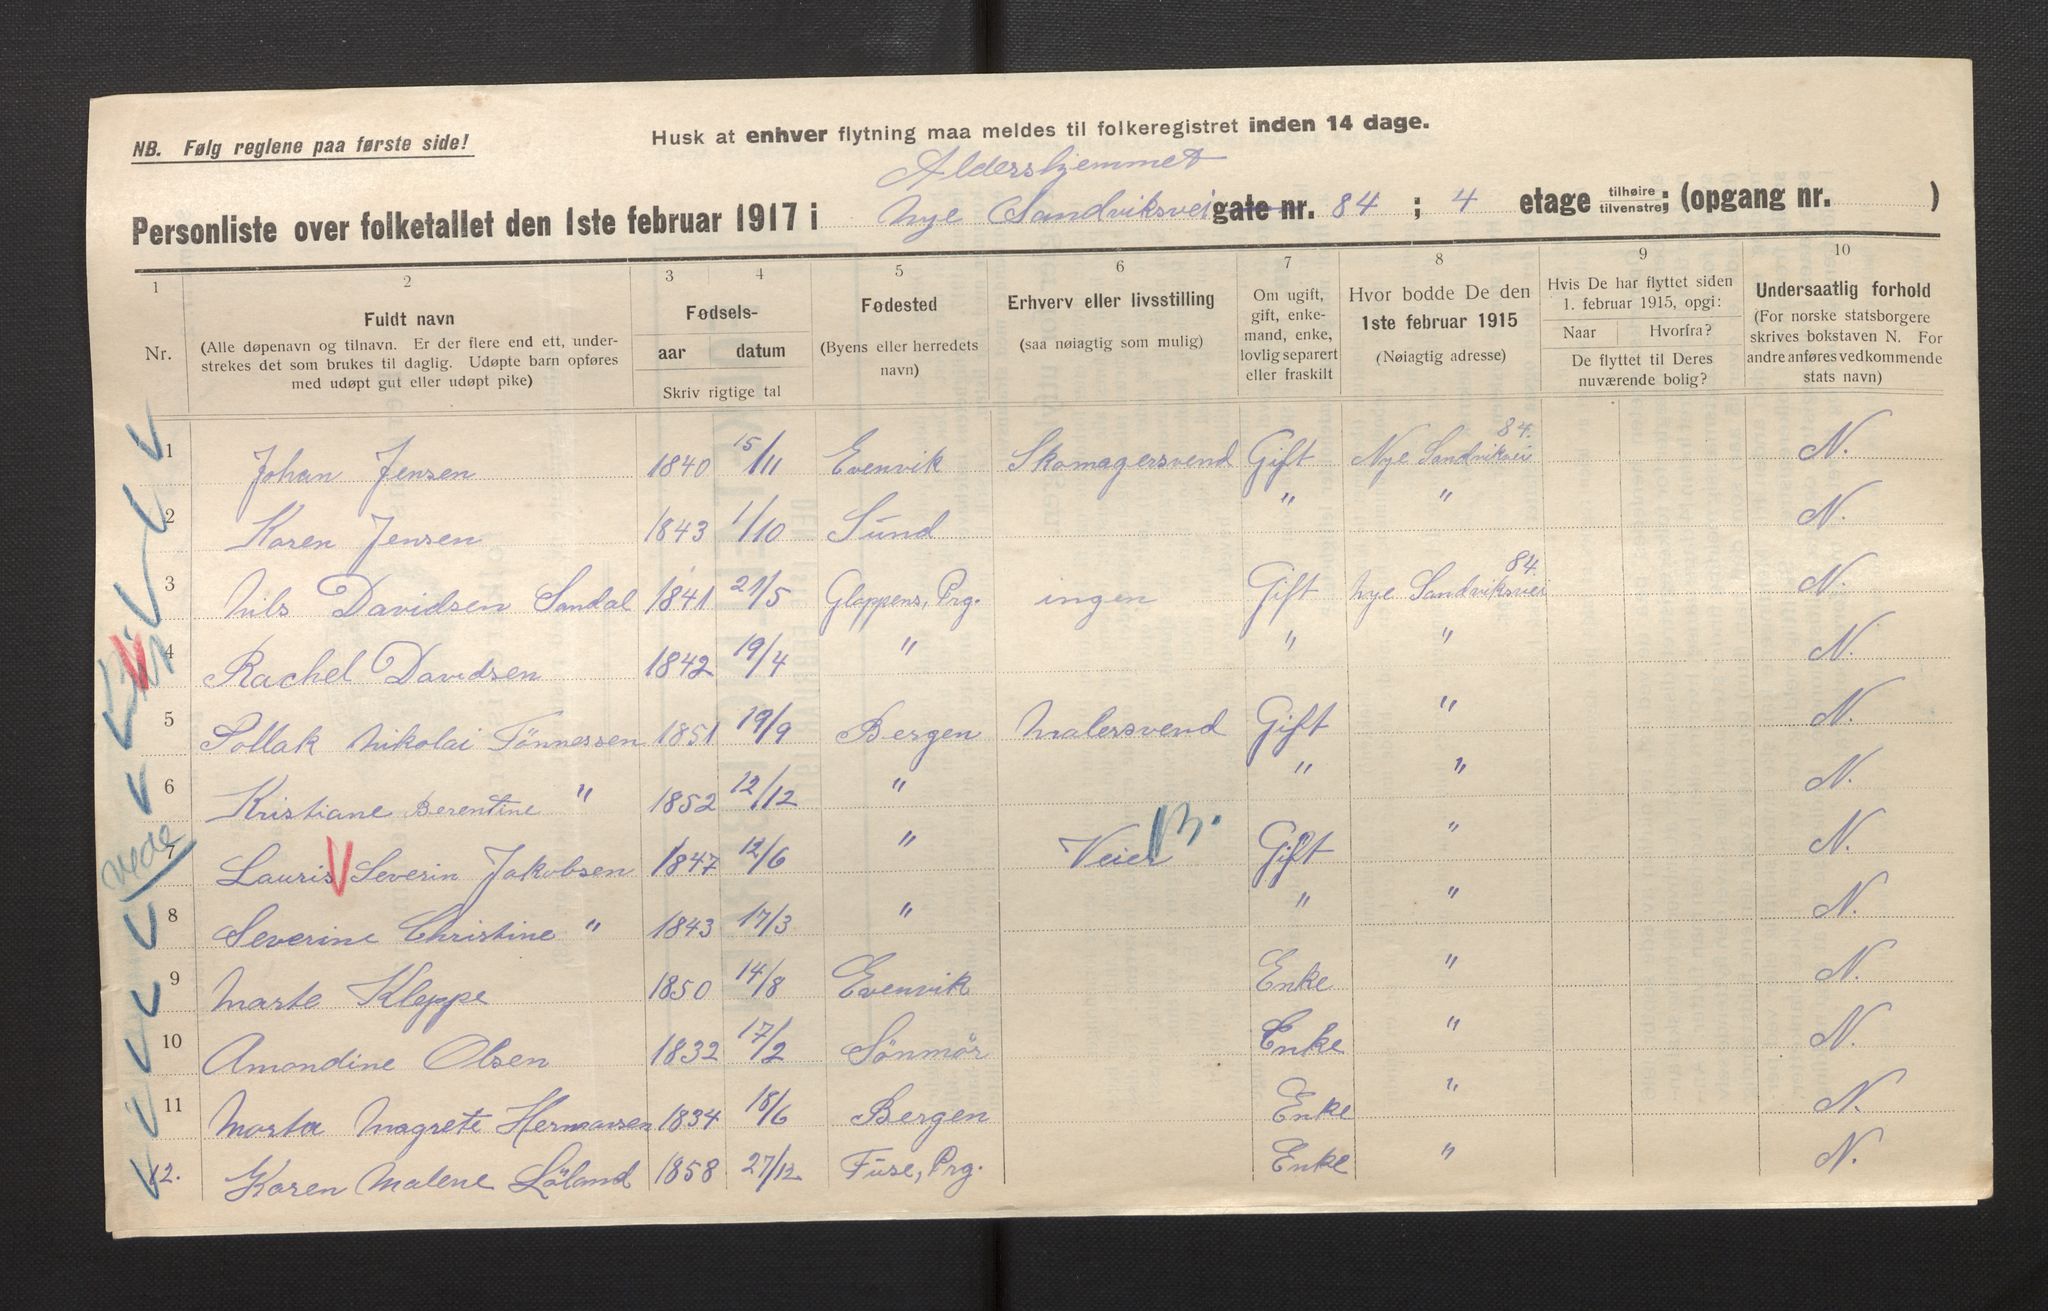 NB. Følg reglene paa første side!
Husk at enhver flytning maa meldes til folkeregistret inden 14 dage.
Aldershjemmet
Personliste over folketallet den 1ste februar 1917 i Nye Sandviksvei gate nr. 84 ; 4 etage tilhøire tilvenstre; (opgang nr. )
1 2 3 4 5 6 7 8 9 10
Nr.
Fuldt navn
(Alle døpenavn og tilnavn. Er der flere end ett, under-
strekes det som brukes til daglig. Udøpte barn opføres
med udøpt gut eller udøpt pike)
Fødsels-
aar datum
Skriv rigtige tal
Fødested
(Byens eller herredets
navn)
Erhverv eller livsstilling
(saa nøiagtig som mulig)
Om ugift,
gift, enke-
mand, enke,
lovlig separert
eller fraskilt
Hvor bodde De den
1ste februar 1915
(Nøiagtig adresse)
Hvis De har flyttet siden
1. februar 1915, opgi:
Naar Hvorfra?
De flyttet til Deres
nuværende bolig?
Undersaatlig forhold
(For norske statsborgere
skrives bokstaven N. For
andre anføres vedkommende
stats navn)
1 Johan Jensen 1840 15/11 Evenvik Skomagersvend Gift Nye Sandvikvei 84. N.
2 Karen Jensen 1843 1/10 Sund " " N.
3 Nils Davidsen Sandal 1841 21/5 Gloppens, Prg. ingen Gift Nye Sandviksvei 84. N.
4 Rachel Davidsen 1842 19/4 " " " N.
5 Pollak Nikolai Tönnessen 1851 19/9 Bergen Malersvend Gift " N.
6 Kristiane Berentine " 1852 12/12 " " " N.
nede
7 Lauris Severin Jakobsen 1847 12/6 " Veier B. Gift " N.
8 Severine Christine " 1843 17/3 " " " N.
9 Marte Kleppe 1850 14/8 Evenvik Enke " N.
10 Amandine Olsen 1832 17/2 Sönmör Enke " N.
11 Marta Magrete Hermansen 1834 18/6 Bergen Enke " N.
12. Karen Malene Löland 1858 27/12 Fuse, Prg. Enke " N.